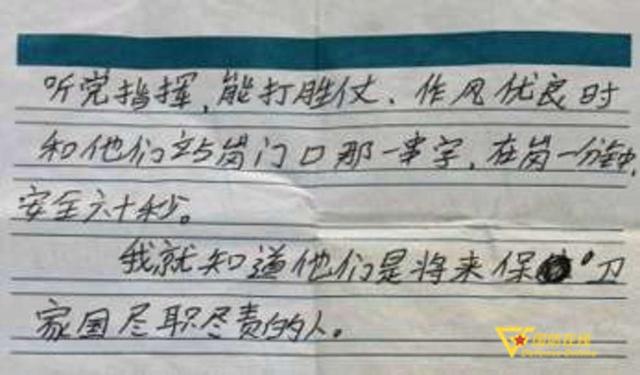 听党指挥,能打胜仗、作风优良时
和他们站岗门口那一串字,在岗一分钟,
安全六十秒。
我就知道他们是将来保卫
家国尽职尽责的人。